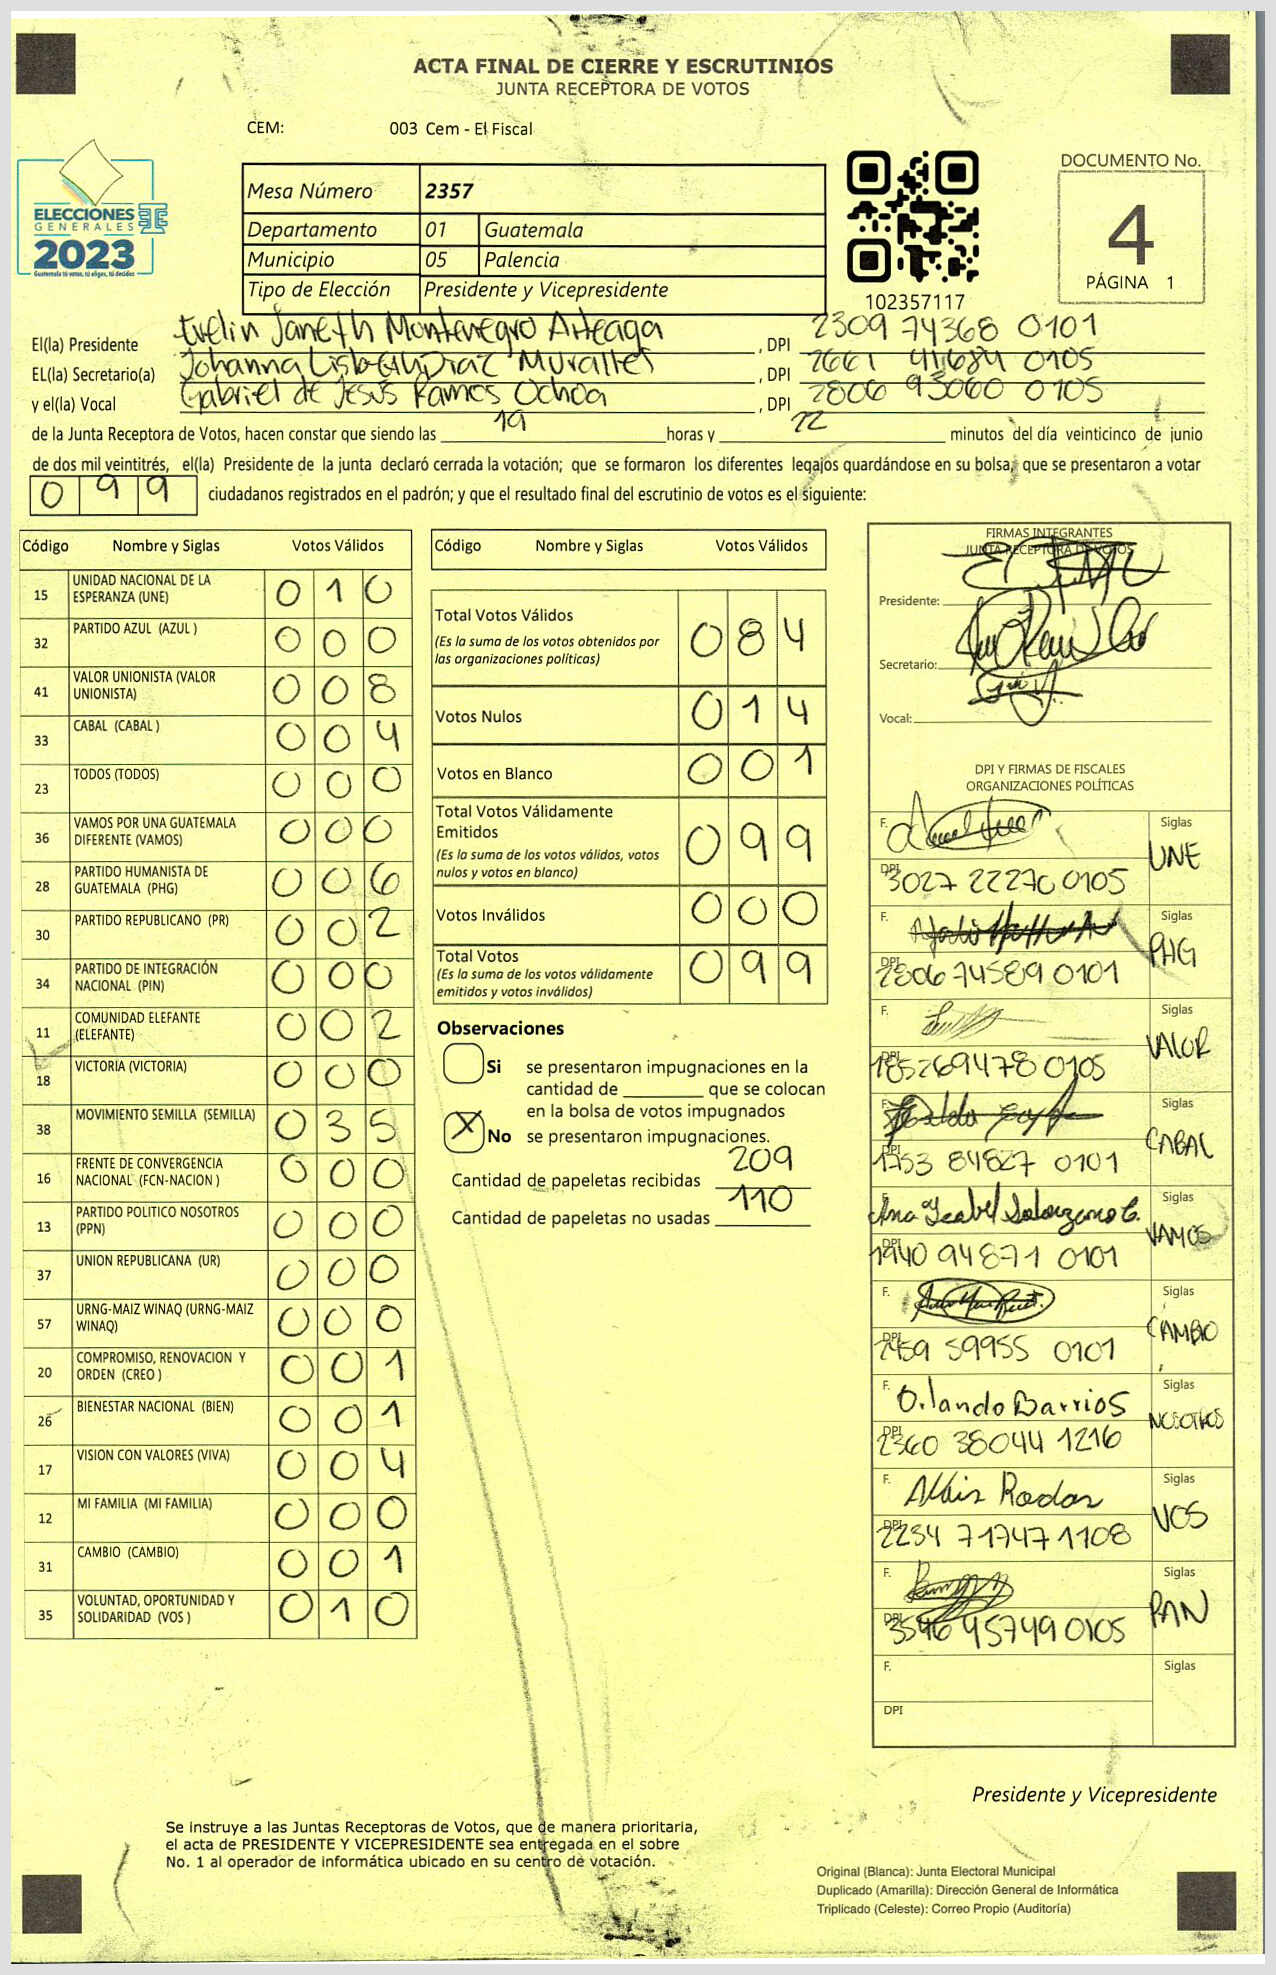 ACTA FINAL DE CIERRE Y ESCRUTINIOS
JUNTA RECEPTORA DE VOTOS
CEM: 003 Cem - El Fiscal
ELECCIONES
GENERALES
2023
Guatemala tú votas, tú eliges, tú decides
Mesa Número 2357
Departamento 01 Guatemala
Municipio 05 Palencia
Tipo de Elección Presidente y Vicepresidente
102357117
DOCUMENTO No.
4
PÁGINA 1
El(la) Presidente Evelin Janeth Montenegro Arteaga, DPI 2309 74368 0101
EL(la) Secretario(a) Johanna Díaz Muralles, DPI 2661 41684 0105
y el(la) Vocal Gabriel de Jesús Ramos Ochoa, DPI 2806 93060 0105
de la Junta Receptora de Votos, hacen constar que siendo las 19 horas y 22 minutos del día veinticinco de junio
de dos mil veintitrés, el(la) Presidente de la junta declaró cerrada la votación; que se formaron los diferentes legajos quardándose en su bolsa, que se presentaron a votar
099 ciudadanos registrados en el padrón; y que el resultado final del escrutinio de votos es el siguiente:
Código Nombre y Siglas Votos Válidos
15 UNIDAD NACIONAL DE LA ESPERANZA (UNE) 010
32 PARTIDO AZUL (AZUL ) 000
41 VALOR UNIONISTA (VALOR UNIONISTA) 008
33 CABAL (CABAL ) 004
23 TODOS (TODOS) 000
36 VAMOS POR UNA GUATEMALA DIFERENTE (VAMOS) 000
28 PARTIDO HUMANISTA DE GUATEMALA (PHG) 006
30 PARTIDO REPUBLICANO (PR) 002
34 PARTIDO DE INTEGRACIÓN NACIONAL (PIN) 000
11 COMUNIDAD ELEFANTE (ELEFANTE) 002
18 VICTORIA (VICTORIA) 000
38 MOVIMIENTO SEMILLA (SEMILLA) 035
16 FRENTE DE CONVERGENCIA NACIONAL (FCN-NACION ) 000
13 PARTIDO POLITICO NOSOTROS (PPN) 000
37 UNION REPUBLICANA (UR) 000
57 URNG-MAIZ WINAQ (URNG-MAIZ WINAQ) 000
20 COMPROMISO, RENOVACION Y ORDEN (CREO ) 001
26 BIENESTAR NACIONAL (BIEN) 001
17 VISION CON VALORES (VIVA) 004
12 MI FAMILIA (MI FAMILIA) 000
31 CAMBIO (CAMBIO) 001
35 VOLUNTAD, OPORTUNIDAD Y SOLIDARIDAD (VOS ) 010
Código Nombre y Siglas Votos Válidos
Total Votos Válidos 084
(Es la suma de los votos obtenidos por
las organizaciones políticas)
Votos Nulos 014
Votos en Blanco 001
Total Votos Válidamente
Emitidos 099
(Es la suma de los votos válidos, votos
nulos y votos en blanco)
Votos Inválidos 000
Total Votos 099
(Es la suma de los votos válidamente
emitidos y votos inválidos)
Observaciones
Si se presentaron impugnaciones en la
cantidad de ________ que se colocan
en la bolsa de votos impugnados
X No se presentaron impugnaciones.
Cantidad de papeletas recibidas 209
Cantidad de papeletas no usadas 110
FIRMAS INTEGRANTES
JUNTA RECEPTORA DE VOTOS
Presidente:
Secretario:
Vocal:
DPI Y FIRMAS DE FISCALES
ORGANIZACIONES POLÍTICAS
F. Siglas UNE
DPI 3027 22270 0105
F. Siglas PHG
DPI 2806 74589 0101
F. Siglas VALOR
DPI 1852 69478 0105
F. Siglas CABAL
DPI 1753 84827 0101
F. Ana Isabel Solorzano G. Siglas VAMOS
DPI 1940 94871 0101
F. Siglas CAMBIO
DPI 2459 59955 0101
F. Orlando Barrios Siglas NOSOTROS
DPI 2360 38044 1216
F. Siglas VOS
DPI 2234 71747 1108
F. Siglas PAN
DPI 3546 45749 0105
F. Siglas
DPI
Presidente y Vicepresidente
Se instruye a las Juntas Receptoras de Votos, que de manera prioritaria,
el acta de PRESIDENTE Y VICEPRESIDENTE sea entregada en el sobre
No. 1 al operador de informática ubicado en su centro de votación.
Original (Blanca): Junta Electoral Municipal
Duplicado (Amarilla): Dirección General de Informática
Triplicado (Celeste): Correo Propio (Auditoría)